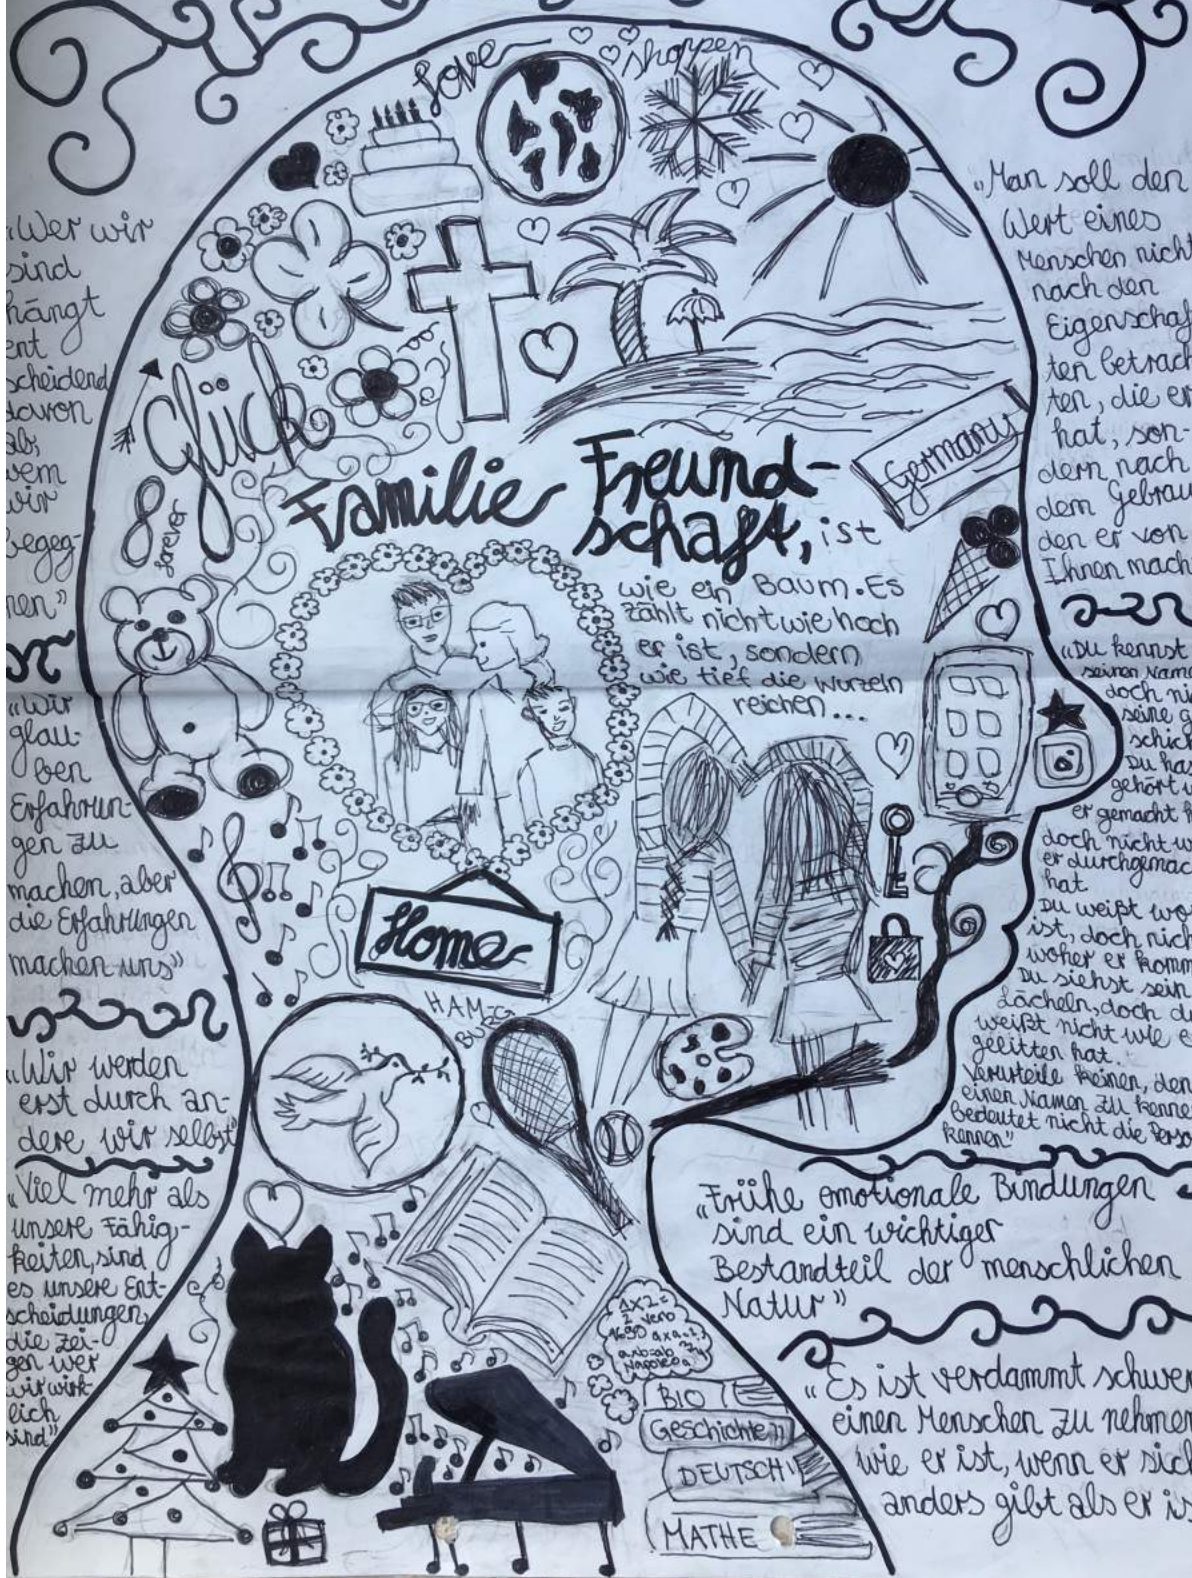 Love
shoppen
„Wer wir
sind
hängt
ent
scheidend
davon
ab,
wem
wir
begeg-
nen"
„Wir
glau-
ben
Erfahrun-
gen zu
machen, aber
die Erfahrungen
machen uns"
„Wir werden
erst durch an-
dere wir selbst"
„Viel mehr als
unsere Fähig-
keiten, sind
es unsere Ent-
scheidungen,
die zei-
gen wer
wir wirk-
lich
sind"
Glück
forever
Familie
Freund-
schaft, ist
wie ein Baum. Es
zählt nicht wie hoch
er ist, sondern
wie tief die wurzeln
reichen...
Germany
Home
HAM
BURG
1x2=
2 verb
1690 axa=
axb=ab
Napoleon
BIO
Geschichte
DEUTSCH
MATHE
„Man soll den
Wert eines
Menschen nicht
nach den
Eigenschaf
ten betrach
ten, die er
hat, son-
dern nach
dem Gebrau
den er von
Ihnen mach
„Du kennst
seinen Name
doch ni
seine g
schick
Du has
gehört w
er gemacht h
doch nicht w
er durchgemac
hat
Du weißt wo
ist, doch nich
woher er komm
Du siehst sein
Lächeln, doch du
weißt nicht wie e
gelitten hat.
Verurteile keinen, den
einen Namen zu kenne
bedeutet nicht die Perso
kennen"
„Frühe emotionale Bindungen
sind ein wichtiger
Bestandteil der menschlichen
Natur"
„Es ist verdammt schwer
einen Menschen zu nehmen
wie er ist, wenn er sich
anders gibt als er is